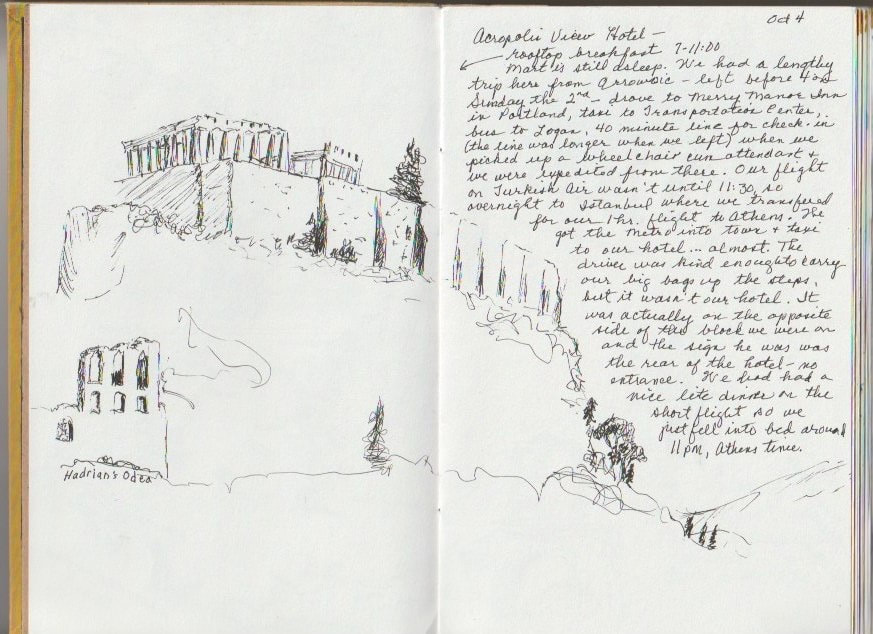 Oct 4
Acropolis View Hotel –
rooftop breakfast 7-11:00
Mart is still asleep. We had a lengthy
trip here from Arrowsic – left before 4 on
Sunday the 2nd – drove to Merry Manor Inn
in Portland, taxi to Transportation Center,
bus to Logan, 40 minute line for check-in
(the line was longer when we left) when we
picked up a wheelchair cum attendant &
we were expedited from there. Our flight
on Turkish Air wasn't until 11:30, so
overnight to Istanbul where we transfered
for our 1 hr. flight to Athens. We
got the Metro into town & taxi
to our hotel... almost. The
driver was kind enough to carry
our big bags up the steps,
but it wasn't our hotel. It
was actually on the opposite
side of the block we were on
and the sign he was was
the rear of the hotel – no
entrance. We had had a
nice lite dinner on the
short flight so we
just fell into bed around
11pm, Athens time.
Hadrian's Odeo